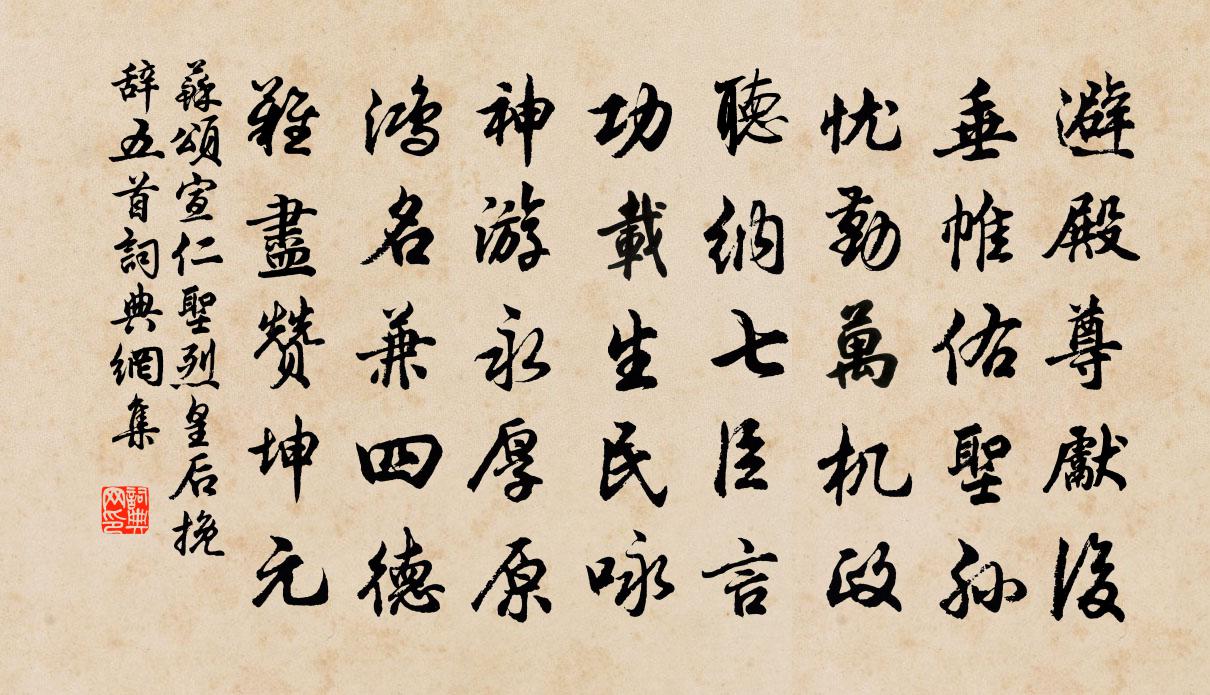 避殿尊獻後
垂帷佑聖孫
忧勤萬机政
聽納七臣言
功載生民咏
神游永厚原
鸿名兼四德
難盡贊坤元
蘇頌宣仁聖烈皇后挽
辞五首詞典網集
詞典网印